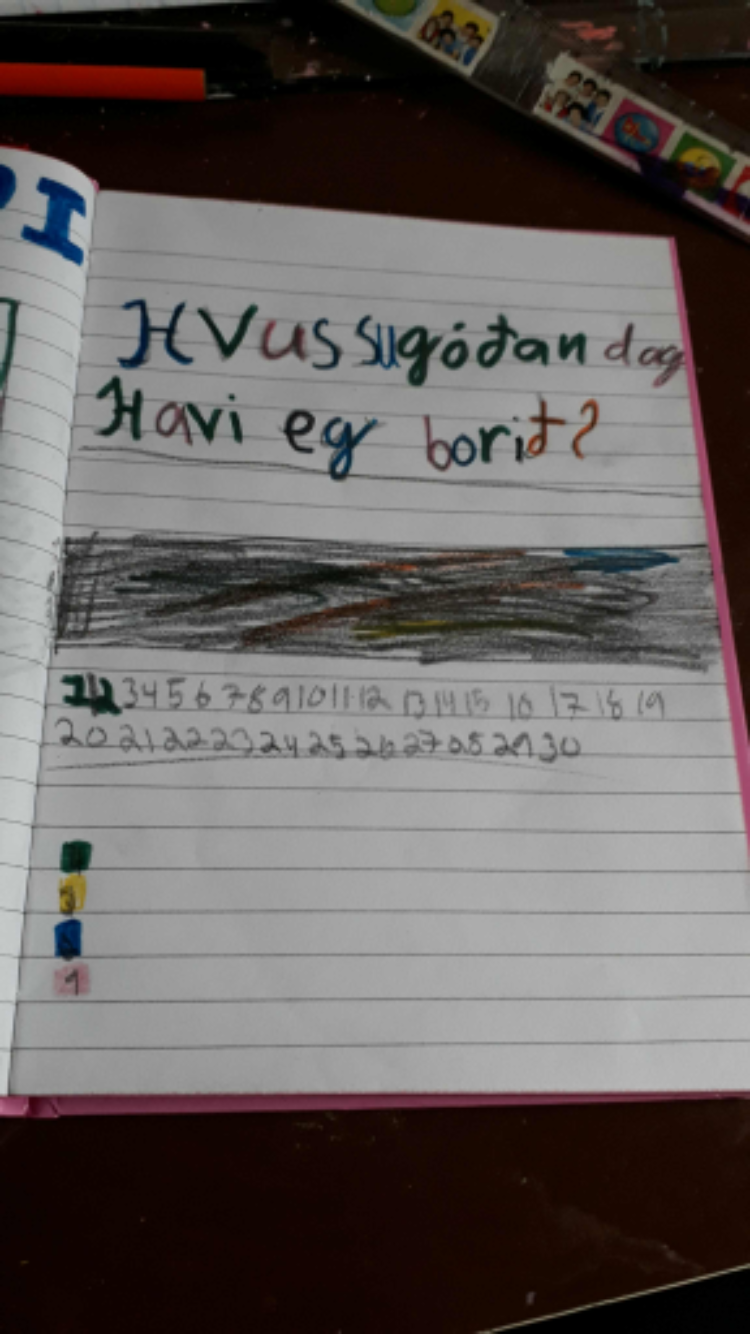 I
HVUS Sugóđan dag
Havi eg borið?
1 2 3 4 5 6 7 8 9 10 11 12 13 14 15 16 17 18 19
20 21 22 23 24 25 26 27 28 29 30
1